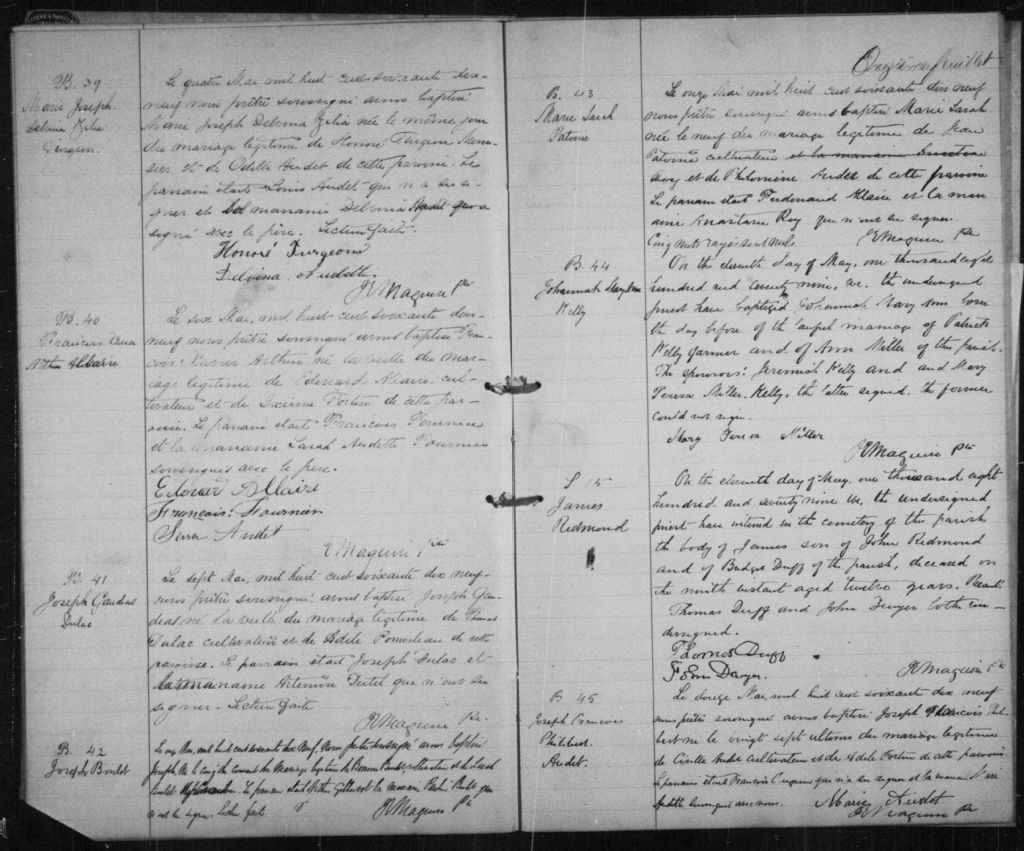 B. 39
Marie Joseph
Delvina Zelia
Turgeon.
Le quatre Mai mil huit cent soixante dix-
neuf nous prêtre soussigné avons baptisé
Marie Joseph Delvina Zelia née le même jour
du mariage légitime de Honoré Turgeon Menu-
sier et de Odile Audet de cette paroisse. Le
parrain était Louis Audet qui n'a su si-
gner et la marraine Delvina Audet qui a
signé avec le père. Lecture faite.
Honoré Turgeon
Delvina Audette.
JE Maguire Ptre
B. 40
François
Arthur Allaire
Le six Mai, mil huit cent soixante dix-
neuf nous prêtre soussigné avons baptisé Fran-
çois Xavier Arthur né la veille du mar-
iage légitime de Edouard Allaire cul-
tivateur et de Fortier de cette par-
oisse. Le parrain était François Fournier
et la marraine Sarah Audette Fournier
soussignés avec le père.
Edouard Allaire
François Fournier
Sera Audet
JE Maguire Ptre
B. 41
Joseph Gaudias
Dulac
Le sept Mai, mil huit cent soixante dix neuf
nous prêtre soussigné avons baptisé Joseph Gau-
dias né la veille du mariage légitime de Thomas
Dulac cultivateur et de Adèle Pomerleau de cette
paroisse. Le parrain était Joseph Dulac et
la marraine Artémise Dutil qui n'ont su
signer. Lecture faite
JE Maguire Ptre
B. 42
Joseph Boulet
Le onze Mai, mil huit cent soixante dix neuf, nous prêtre soussigné avons baptisé
Joseph, né le cinq du courant du Mariage légitime de Boulet, cultivateur et de
Boulet Le parrain était et la marraine Boulet qui
n'ont su signer. Lecture faite
JE Maguire Ptre
Onzième feuillet
B. 43
Marie Sarah
Patoine
Le onze Mai mil huit cent soixante dix neuf
nous prêtre soussigné avons baptisé Marie Sarah
née le neuf du mariage légitime de Jean
Patoine cultivateur et la marraine
Roy et de Philomène Audet de cette paroisse
Le parrain était Ferdinand Allaire et la mar-
raine Anastasie Roy qui n'ont su signer.
Cinq mots rayés sont nuls.
JE Maguire Ptre
B. 44
Johannah Mary Ann
Kelly
On the eleventh day of May, one thousand eight
hundred and seventy nine, we, the undersigned
priest have baptized Johannah Mary Ann born
the day before of the lawful marriage of Patrick
Kelly farmer and of Ann Miller of this parish.
The sponsors: Jeremiah Kelly and and Mary
Teresa Miller Kelly, the latter signed. the former
could not sign.
Mary Teresa Miller
JE Maguire Ptre
S 15
James
Redmond
On the eleventh day of May, one thousand eight
hundred and seventy nine we, the undersigned
priest have interred in the cemetery of this parish
the body of James son of John Redmond
and of Bridget Duff of this parish, deceased on
the ninth instant aged twelve years. Present
Thomas Duff and John Dwyer both un-
dersigned.
Thomas Duff
John Dwyer
JE Maguire Ptre
B. 45
Joseph François
Philibert
Audet.
Le douze Mai, mil huit cent soixante dix neuf
nous prêtre soussigné avons baptisé Joseph François Phili-
bert né le vingt sept ultimo du mariage légitime
de Audet cultivateur et de Adèle Fortin de cette paroisse
Le parrain était François qui n'a su signer et la marraine
Audette soussignée avec nous.
Marie Audet
JE Maguire Ptre